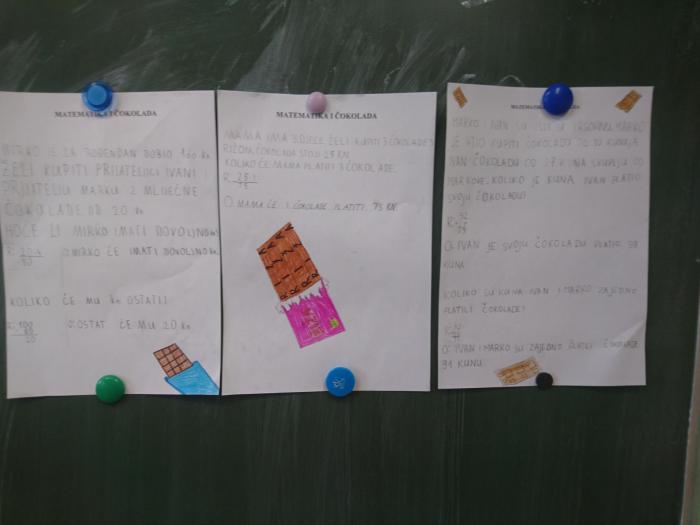 MATEMATIKA I ČOKOLADA
MIRKO JE ZA ROĐENDAN DOBIO 100 Kn
ŽELI KUPITI PRIJATELJICI IVANI I
PRIJATELJU MARKU 2 MLIJEČNE
ČOKOLADE OD 20 Kn
HOĆE LI MIRKO IMATI DOVOLJNO Kn
R:
O: MIRKO ĆE IMATI DOVOLJNO Kn.
KOLIKO ĆE MU Kn OSTATI?
R: 100
O: OSTAT ĆE MU 20 Kn
MATEMATIKA I ČOKOLADA
MAMA IMA 3 DJECE ŽELI KUPITI 3 ČOKOLADE S
RIŽOM. ČOKOLADA STOJI 25 KN.
KOLIKO ĆE MAMA PLATITI 3 ČOKOLADE.
R: 25·3
75
O: MAMA ĆE 3 ČOKOLADE PLATITI 75 KN.
MATEMATIKA I ČOKOLADA
MARKO I IVAN SU U TRGOVINU. MARKO
JE HTIO KUPITI ČOKOLADU
IVAN ČOKOLADU OD KUNA SKUPLJU OD
MARKOVE. KOLIKO JE KUNA IVAN PLATIO
SVOJU ČOKOLADU?
R:
O: IVAN JE SVOJU ČOKOLADU PLATIO 59
KUNA.
KOLIKO SU KUNA IVAN I MARKO ZAJEDNO
PLATILI ČOKOLADE?
R:
O: IVAN I MARKO SU ZAJEDNO PLATILI ČOKOLADE
91 KUNU.